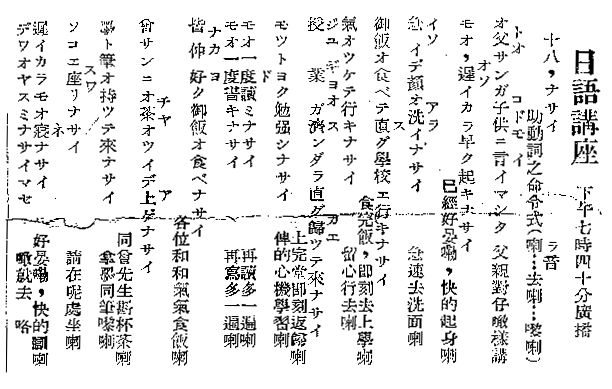 日語講座 下午七時四十分廣播
十八，ナサイ ラ音
助動詞之命令式(喇…去喇…嚟喇)
トオ コドモ イ
オ父サンガ子供ニ言イマシタ 父親對仔噉樣講
オソ
モオ，遲イカラ早ク起キナサイ 已經好晏嘞，快的起身喇
イソ アラ
急イデ顔オ洗イナサイ 急速去洗面喇
ス
御飯オ食ベテ直グ學校エ行キナサイ 食完飯，即刻去上學喇
氣オツケテ行キナサイ 留心行去喇
ジュギョオ ス カエ
授業ガ濟ンダラ直グ歸ツテ來ナサイ 上完堂即刻返歸喇
モツトヨク勉强シナサイ 俾的心機學習喇
ド
モオ一度讀ミナサイ 再讀多一遍喇
モオ一度書キナサイ 再寫多一遍喇
ナカヨ
皆仲好ク御飯オ食ベナサイ 各位和和氣氣食飯喇
チヤ ア
曾サンニオ茶オツイデ上ゲナサイ 同曾先生斟杯茶喇
墨ト筆オ持ツテ來ナサイ 墨同筆嚟喇
スワ
ソコエ座リナサイ 請在呢處坐喇
ネ
遲イカラモオ寢ナサイ 好晏嘞，快的瞓喇
デワオヤスミナサイマセ 噉就去咯